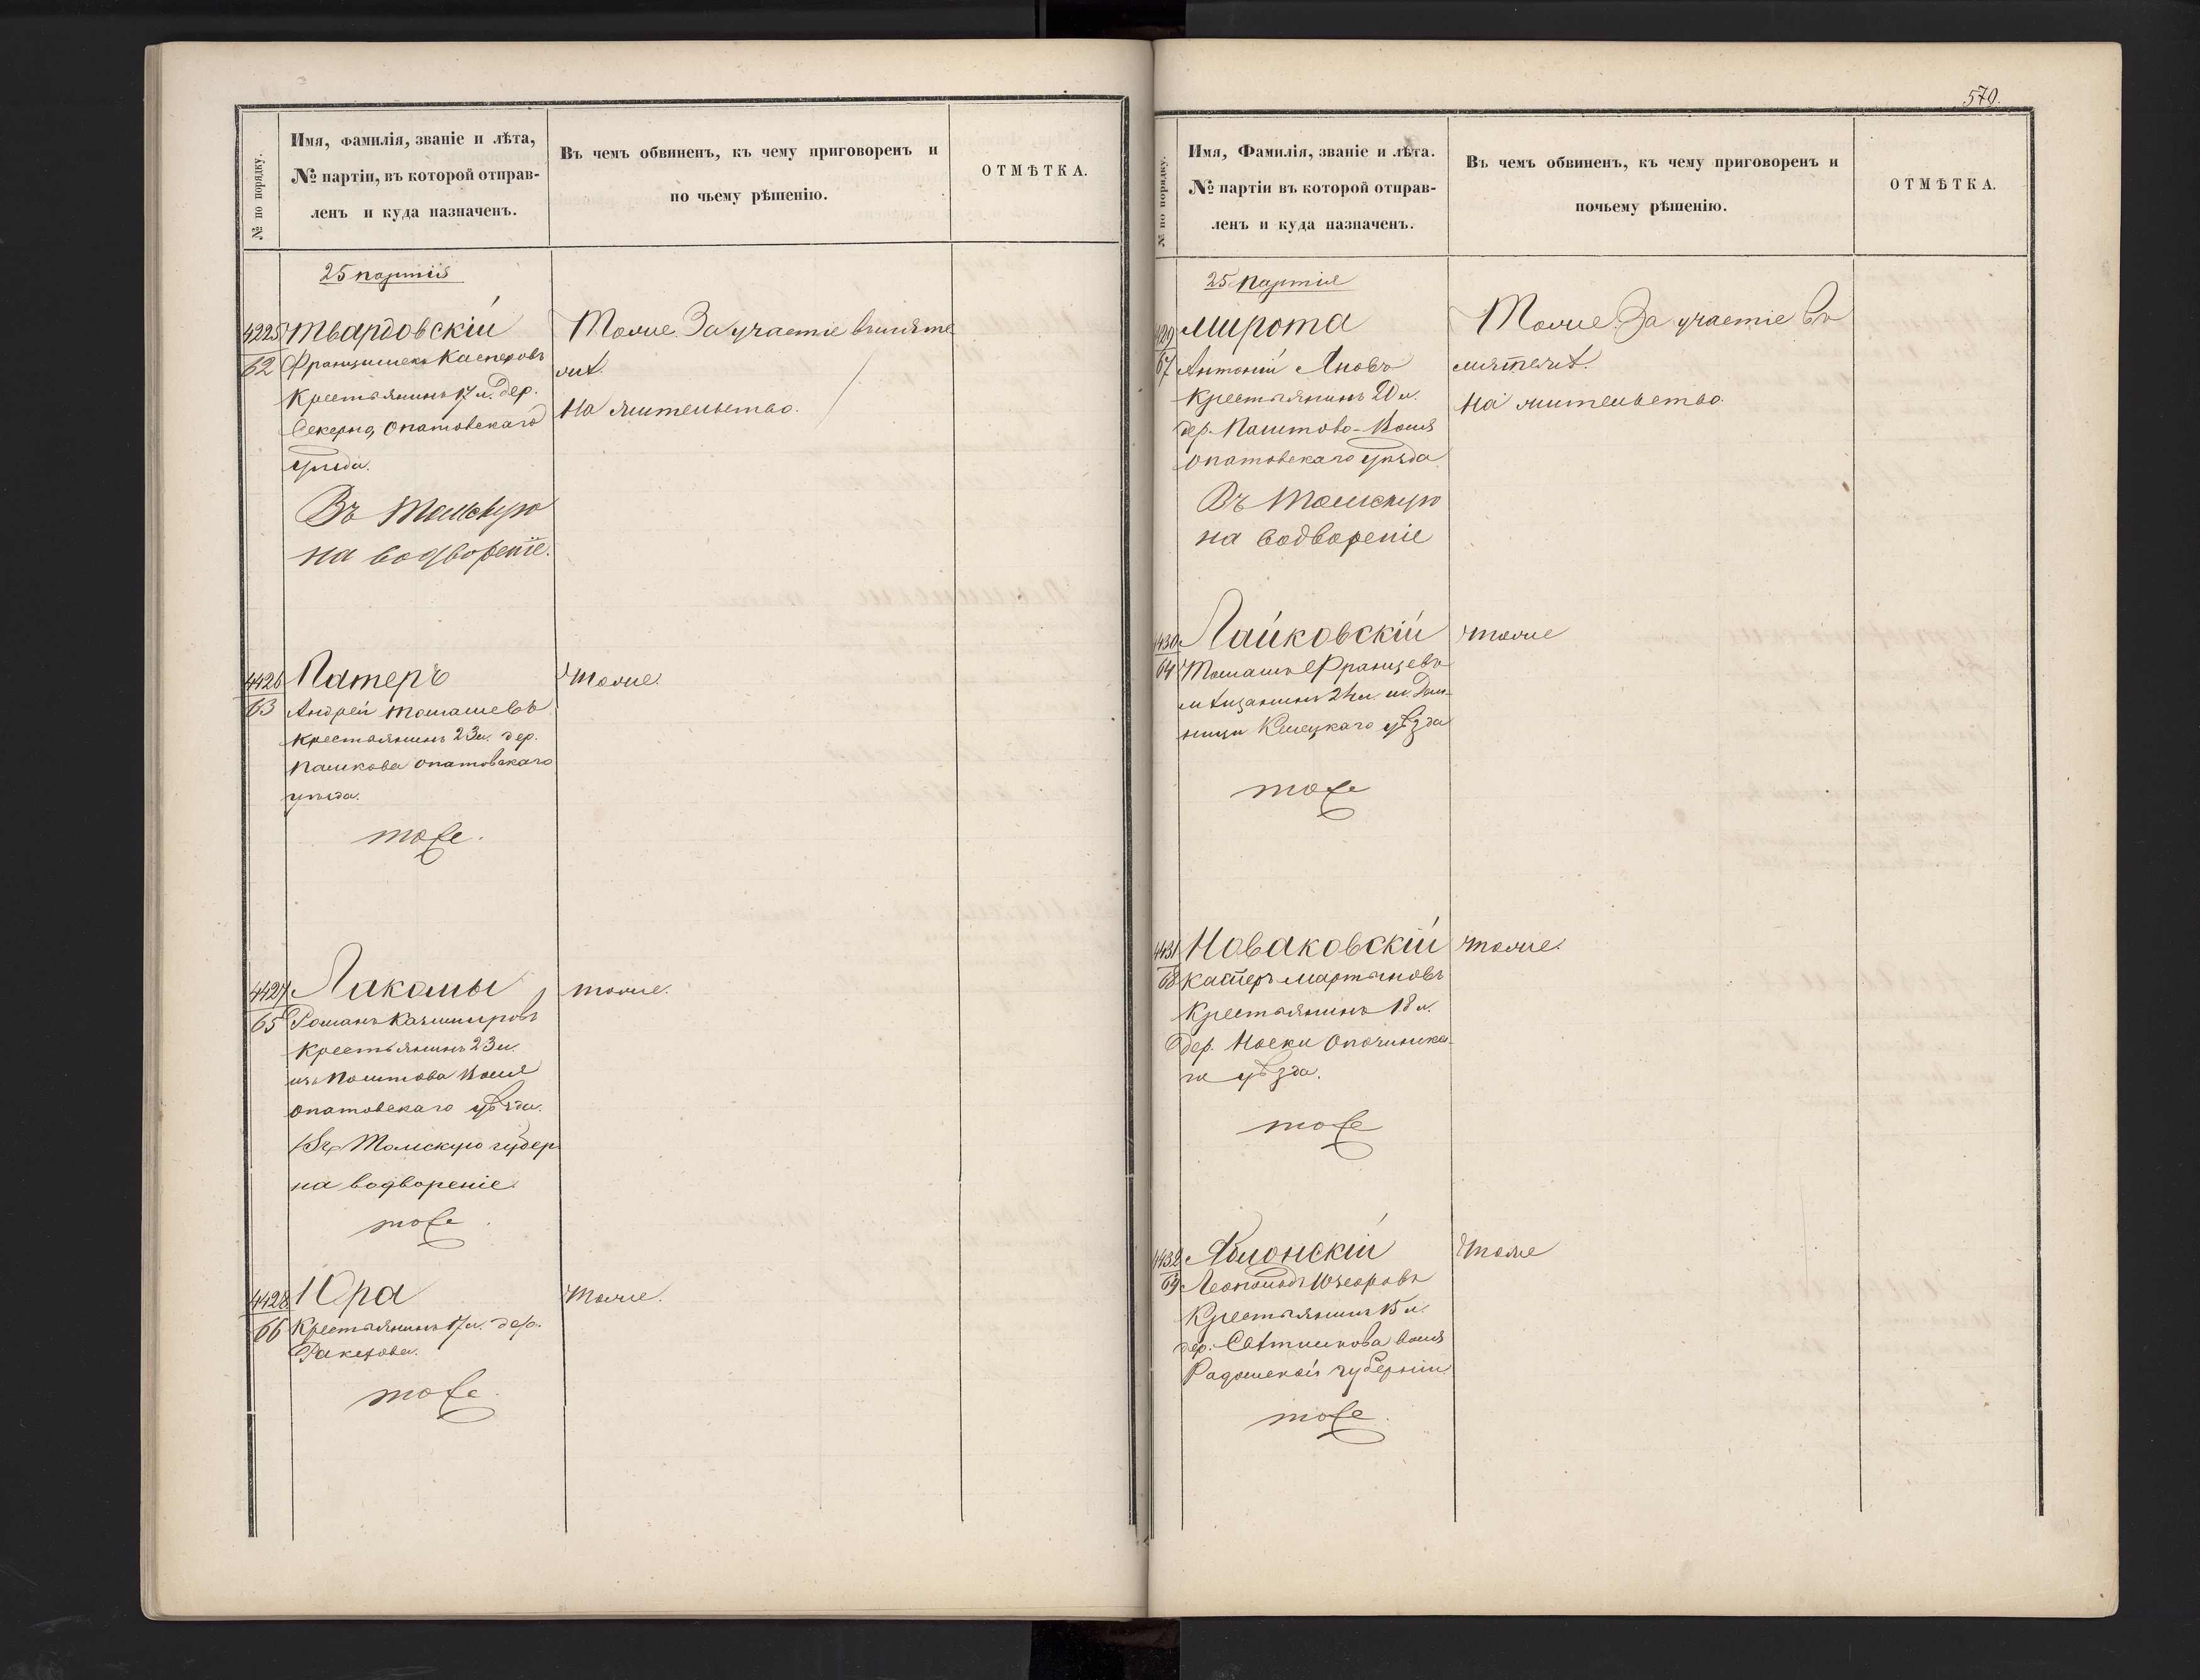 № по порядку.
Имя, Фамилія, званіе и лѣта,
№ партіи, въ которой отправ-
ленъ и куда назначенъ.
Въ чемъ обвиненъ, къ чему приговоренъ и
по чьему рѣшенію.
ОТМѢТКА.
25 партія
4225
62
Твардовскій
Францишекъ Касперовъ
Крестьянинъ 17 л. дер.
Секерно, Опатовскаго
уѣзда.
Въ Томскую
на водвореніе.
Тоже. За участіе въ мяте
жѣ.
На жительство.
4426
63
Патеръ
Андрей Томашевъ
Крестьянинъ 23 л. дер.
Пашкова Опатовскаго
уѣзда.
тоже.
Тоже.
4427
65
Лакомы
Романъ Казимировъ
Крестьянинъ 23 л.
Воля
Опатовскаго уѣзда.
Въ Томскую губер
на водвореніе.
тоже
тоже.
4428
66
Юра
Крестьянинъ 17 л. дер.
Ракетова.
тоже.
Тоже.
570.
№ по порядку.
Имя, Фамилія, званіе и лѣта.
№ партіи въ которой отправ-
ленъ и куда назначенъ.
Въ чемъ обвиненъ, къ чему приговоренъ и
почьему рѣшенію.
ОТМѢТКА.
25 партія
429
67
Мирота
Антоній Яновъ
Крестьянинъ 20 л.
дер. Воля
Опатовскаго уѣзда
Въ Томскую
на водвореніе
Тоже. За участіе въ
мятежѣ.
На жительство.
4430
64
Лайковскій
Томашъ Францевъ
мѣщанинъ 24 л. м.
Келецкаго уѣзда
тоже
тоже
4431
68
Новаковскій
Ка
Мартыновъ
Крестьянинъ 18 л.
Дер. Носки Опочинска-
го уѣзда.
тоже
тоже.
4432
69
Яблонскій
Леопольдъ
Крестьянинъ 15 л.
дер. Воля
Радомской губерніи.
тоже.
Тоже